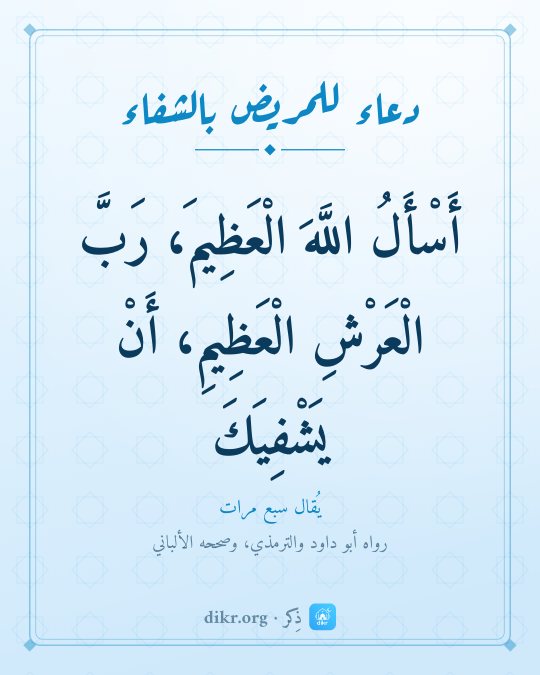 دعاء للمريض بالشفاء
أَسْأَلُ اللَّهَ الْعَظِيمَ، رَبَّ
الْعَرْشِ الْعَظِيمِ، أَنْ
يَشْفِيَكَ
يُقال سبع مرات
رواه أبو داود والترمذي، وصححه الألباني
ذِكر · dikr.org